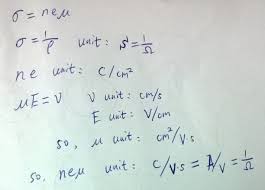 σ = neμ
σ = 1/ρ unit: S = 1/Ω
ne unit: C/cm²
μE = V V unit: cm/s
E unit: V/cm
so, μ unit: cm²/V·s
so, neμ unit: C/V·s = A/V = 1/Ω